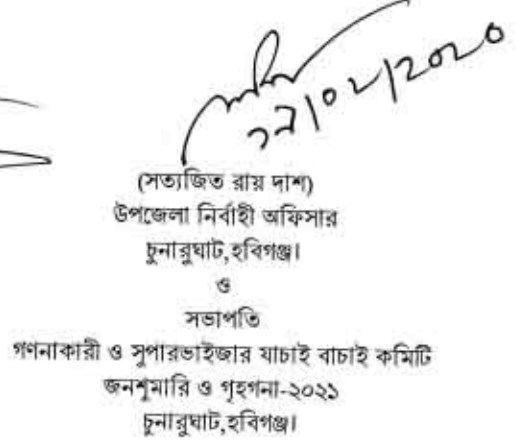 (সত্যজিত রায় দাশ)
উপজেলা নির্বাহী অফিসার
চুনারুঘাট,হবিগঞ্জ।
ও
সভাপতি
গণনাকারী ও সুপারভাইজার যাচাই বাচাই কমিটি
জনশুমারি ও গৃহগনা-২০২১
চুনারুঘাট,হবিগঞ্জ।